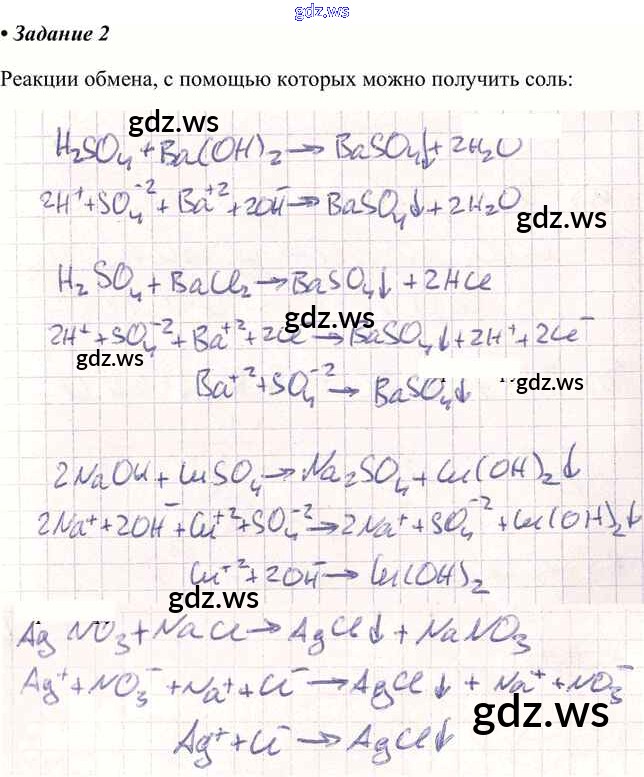 gdz.ws
• Задание 2
Реакции обмена, с помощью которых можно получить соль:
gdz.ws
H₂SO₄ + Ba(OH)₂ → BaSO₄↓ + 2H₂O
2H⁺ + SO₄⁻² + Ba⁺² + 2OH⁻ → BaSO₄↓ + 2H₂O
gdz.ws
H₂SO₄ + BaCl₂ → BaSO₄↓ + 2HCl
gdz.ws
2H⁺ + SO₄⁻² + Ba⁺² + 2Cl⁻ → BaSO₄↓ + 2H⁺ + 2Cl⁻
gdz.ws
Ba⁺² + SO₄⁻² → BaSO₄↓
gdz.ws
2NaOH + CuSO₄ → Na₂SO₄ + Cu(OH)₂↓
2Na⁺ + 2OH⁻ + Cu⁺² + SO₄⁻² → 2Na⁺ + SO₄⁻² + Cu(OH)₂↓
Cu⁺² + 2OH⁻ → Cu(OH)₂
gdz.ws
AgNO₃ + NaCl → AgCl↓ + NaNO₃
Ag⁺ + NO₃⁻ + Na⁺ + Cl⁻ → AgCl↓ + Na⁺ + NO₃⁻
gdz.ws
Ag⁺ + Cl⁻ → AgCl↓